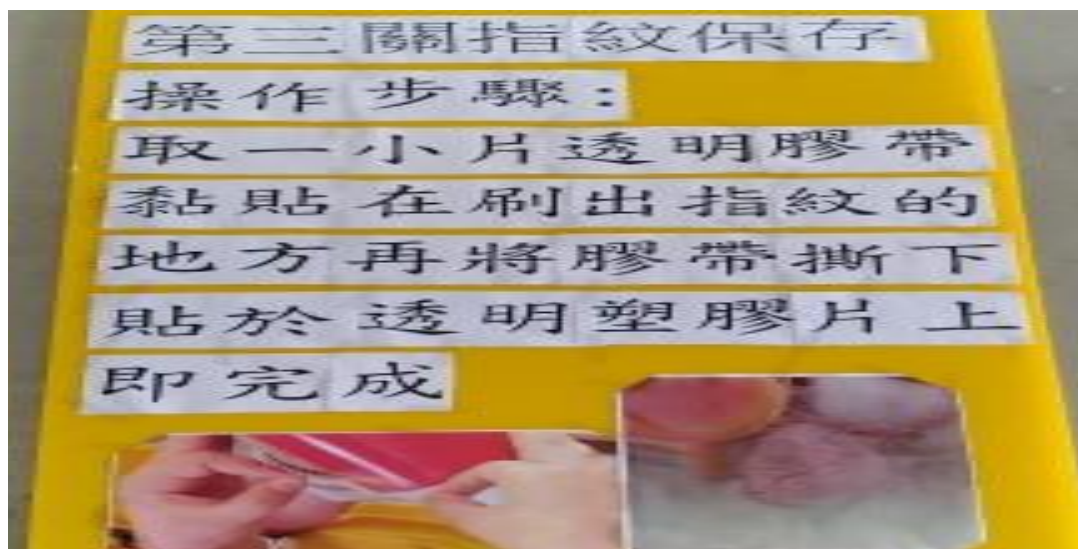 第三關指紋保存
操作步驟:
取一小片透明膠帶
黏貼在刷出指紋的
地方再將膠帶撕下
貼於透明塑膠片上
即完成